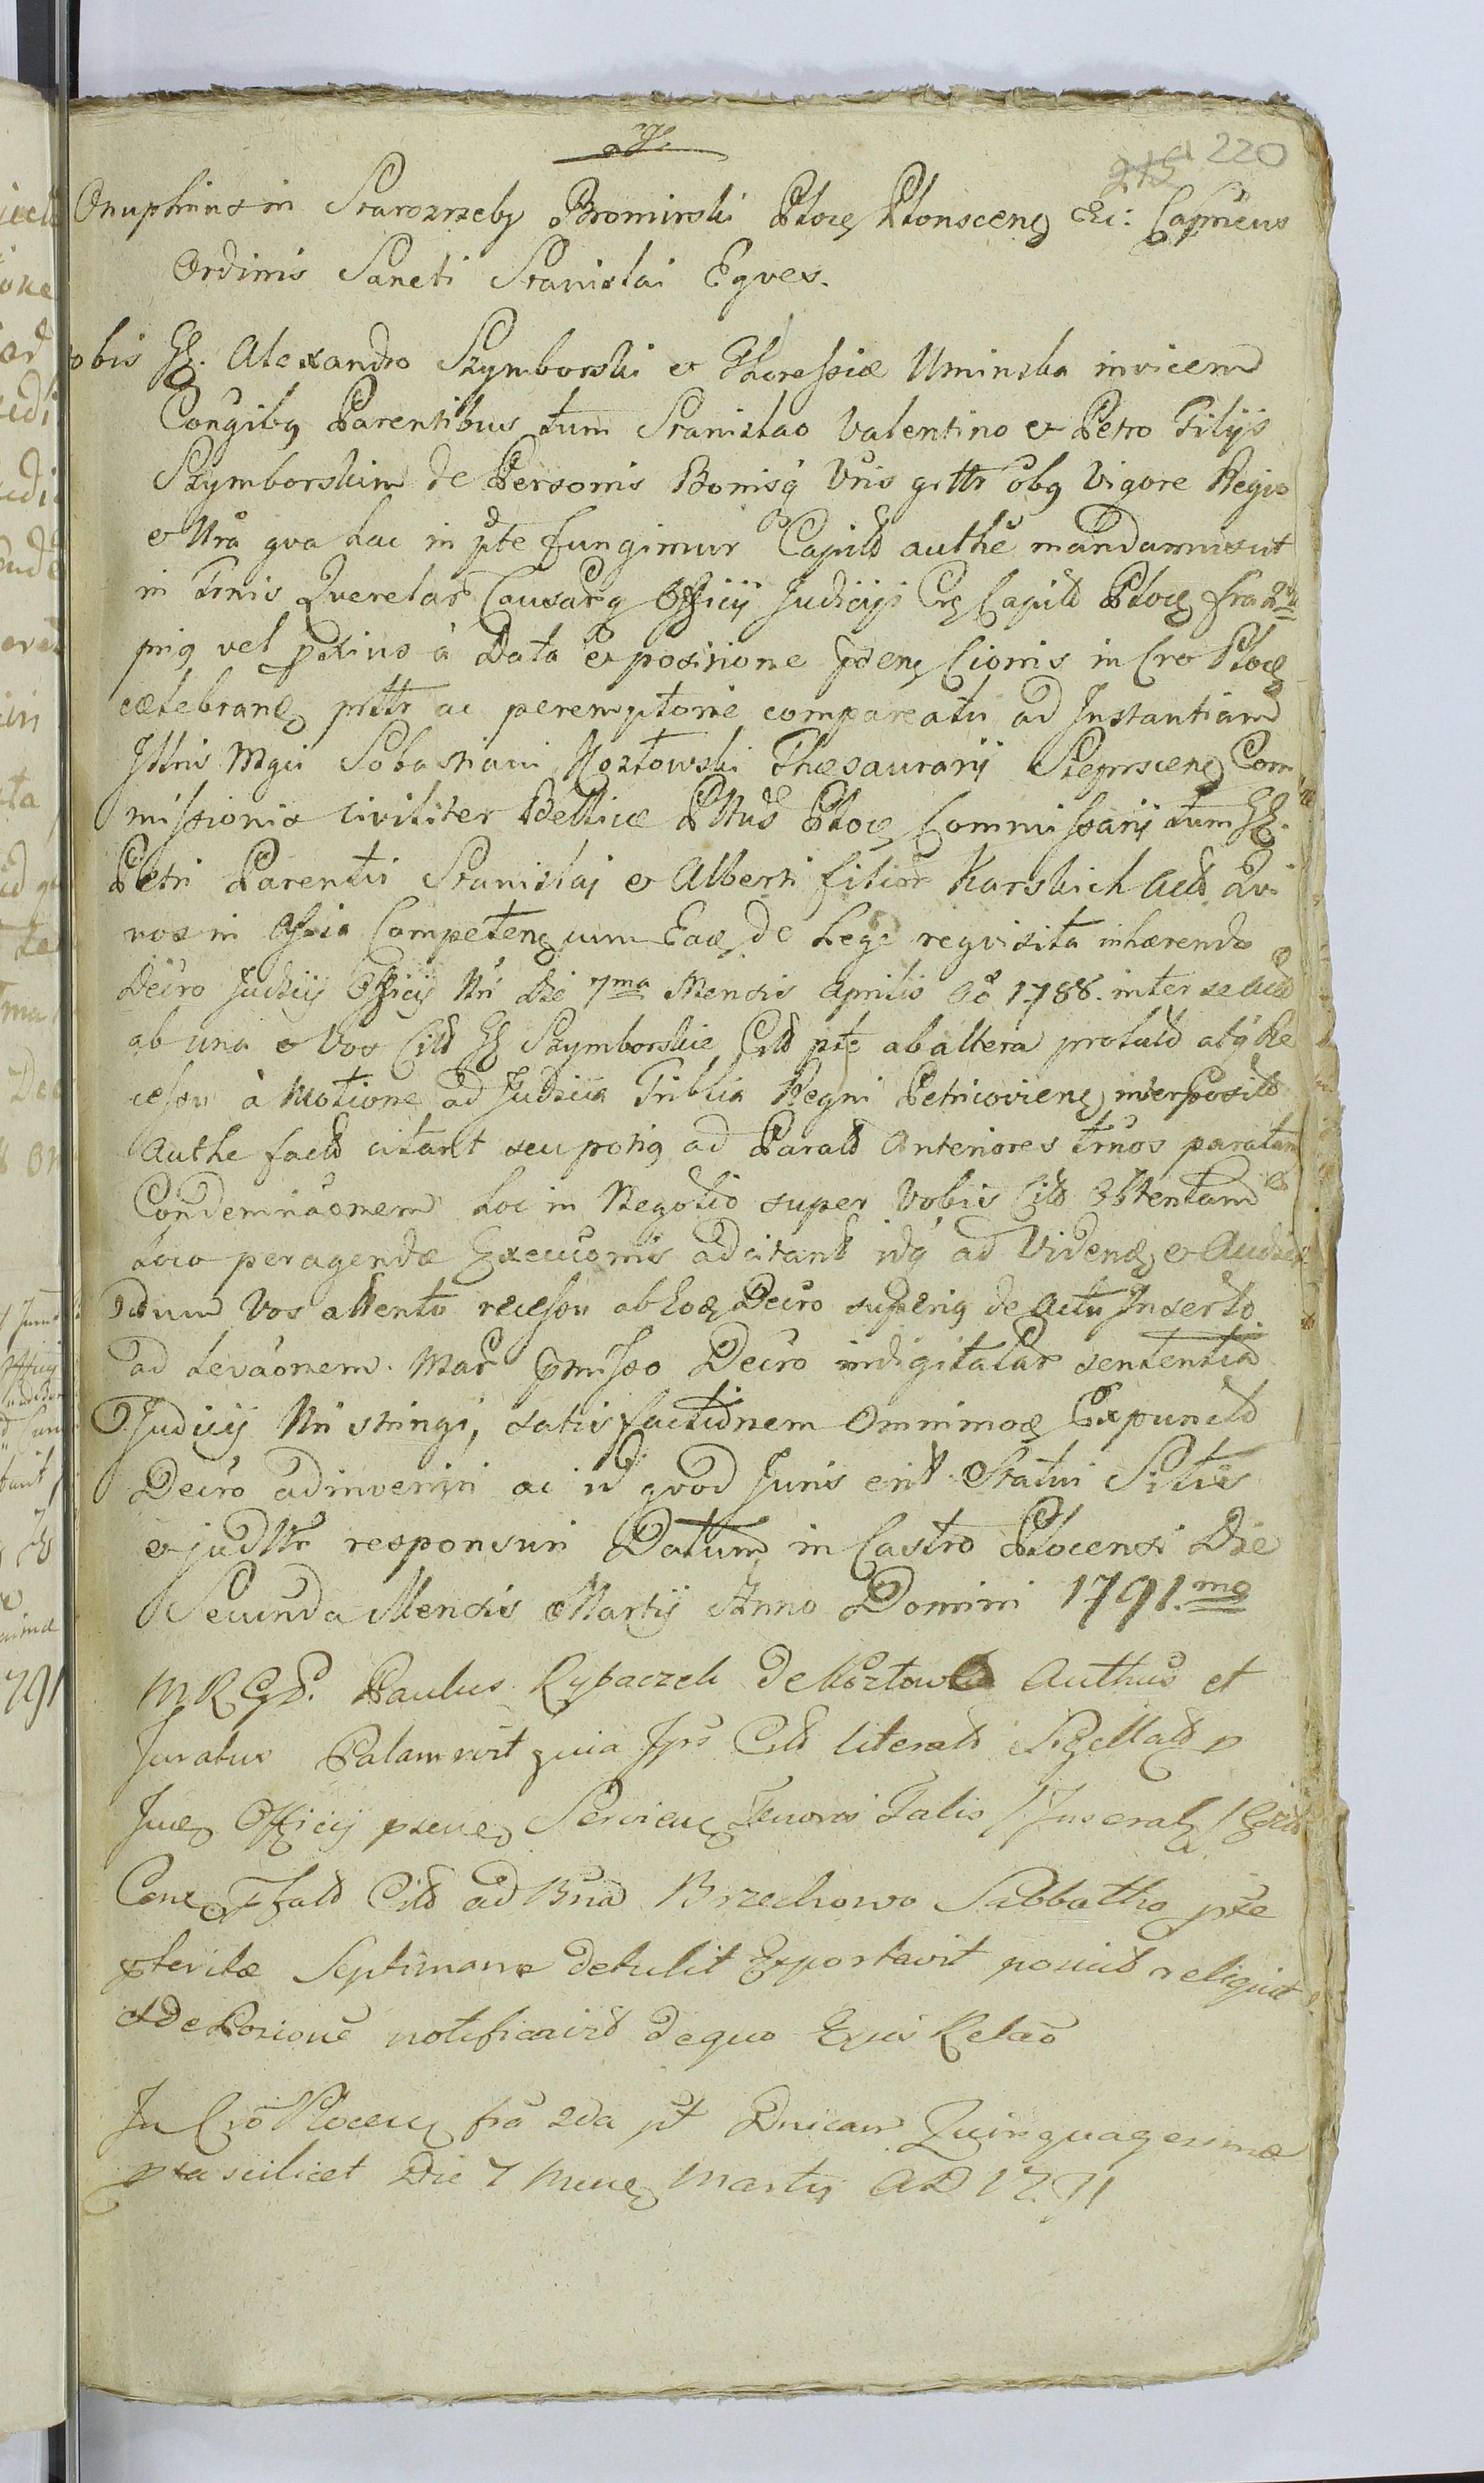 215 220
Onuphrius in Starozrzeby Bromirski Ploc Plonscens &c: Capneus
Ordinis Sancti Stanislai Eques.
obis GG. Alexandro Szymborski et Theressiæ Uminska invicem
Congibq Parentibus tum Stanislao Valentino et Petro Filijs
Szymborskim de Personis Bonisq Vris gnttr obq Vigore Regio
et Nra qva hac in pte fungimur Capnld authe mandamus ut
in Trnis Querelar Causarq Officij Judicijs Crs Capnld Ploc fra 2da
priq vel proxius à Data et positione pdens Cionis in Cro Ploc
cælebrand pnttr ac peremptorie compareatis ad Instantiam
Illris Mgci Sebastiani Kozłowski Thæsaurarij Sieprscens Com
missionis Civiliter Bellicæ Plttus Ploc Commissarij tum GG.
Petri Parentis Stanislaj et Alberti filior Karskich Actt Qui
vos in Assia Competens cum Eadę de Lege reqvisita inhærendo
Decro Judicij Officij Nri Die 7ma Mensis Aprilis Ao 1788. inter se Actt
ab una et Vos Citt GG Szymborskie Citt pte ab altera prolatt atq Re
cessu à Motione ad Judicia Triblia Regni Petricoviens interposito
Authe factt citant seu potiq ad Paratt Anteriores trnos paratam
Condemnaonem hoc in Negotio super Vobis Citt Obtentam et
Loco peragendæ Execuonis adcitant idq ad Videnđ et Audien
dum Vos attento recessu ab hoc Decro superiq de Actu Inserto
ad levaonem. Mar pmisso Decro indigitatar sententia
Judicij Nri stringi, satisfactionem Omnimodę Expunctd
Decro adinveniri ac id quod Juris erit Statui Sitis
et judltr responsuri Datum in Castro Plocensi Die
Secunda Mensis Martij Anno Domini 1791.mo
MRGD. Paulus Rybaczek de Kozłowo Authus et
Juratus Palam rcvit quia Ips Citt literatt Sigillatt p
Jues Officij pseues Serviens Tenoris Talis / Inserat /
Cone Citt ad Bna Brzechowo Sabbatho præ
teritæ Septimanæ detulit Exportavit posuit reliquit
et de Posicione notificavit de quo Ejus Relao
In Cro Ploceus fra 2da pt Dnicam Quinquagesimæ
pxa scilicet Die 7 Mens Martij AD 1791